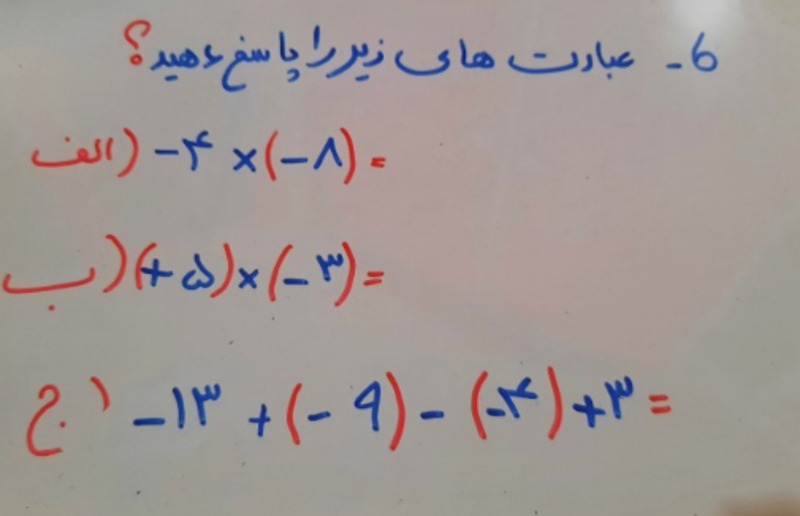 6- عبارت های زیر را پاسخ دهید؟
الف) -۴ × (-۸) =
ب) (+۵) × (-۳) =
ج) -۱۳ + (-۹) - (-۴) + ۳ =